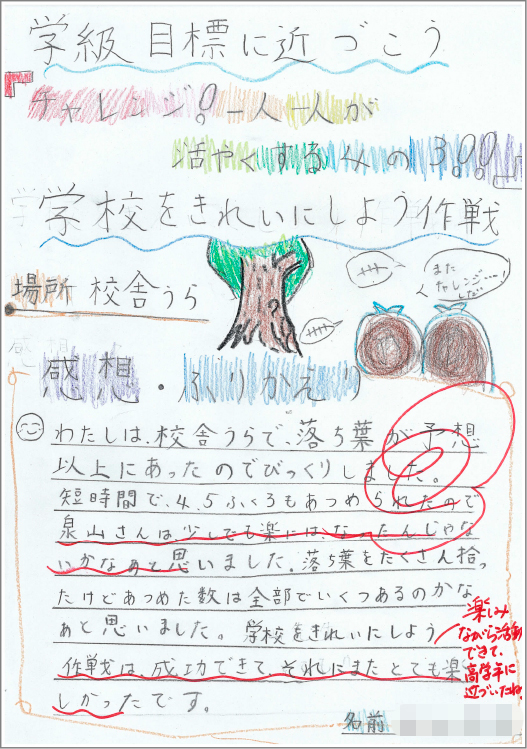 学級目標に近づこう
「チャレンジ!一人一人が
活やくするみの3!!」
学校をきれいにしよう作戦
場所 校舎うら
また
チャレンジ…
したい…!
感想・ふりかえり
わたしは、校舎うらで、落ち葉が予想
以上にあったのでびっくりしました。
短時間で、4、5ふくろもあつめられたので
泉山さんは少しでも楽にはなったんじゃな
いかなぁと思いました。落ち葉をたくさん拾っ
たけどあつめた数は全部でいくつあるのかな
ぁと思いました。学校をきれいにしよう
作戦は、成功できて、それにまたとても楽
しかったです。
楽しみ
ながら活動
できて、
高学年に
近づいたね。
名前